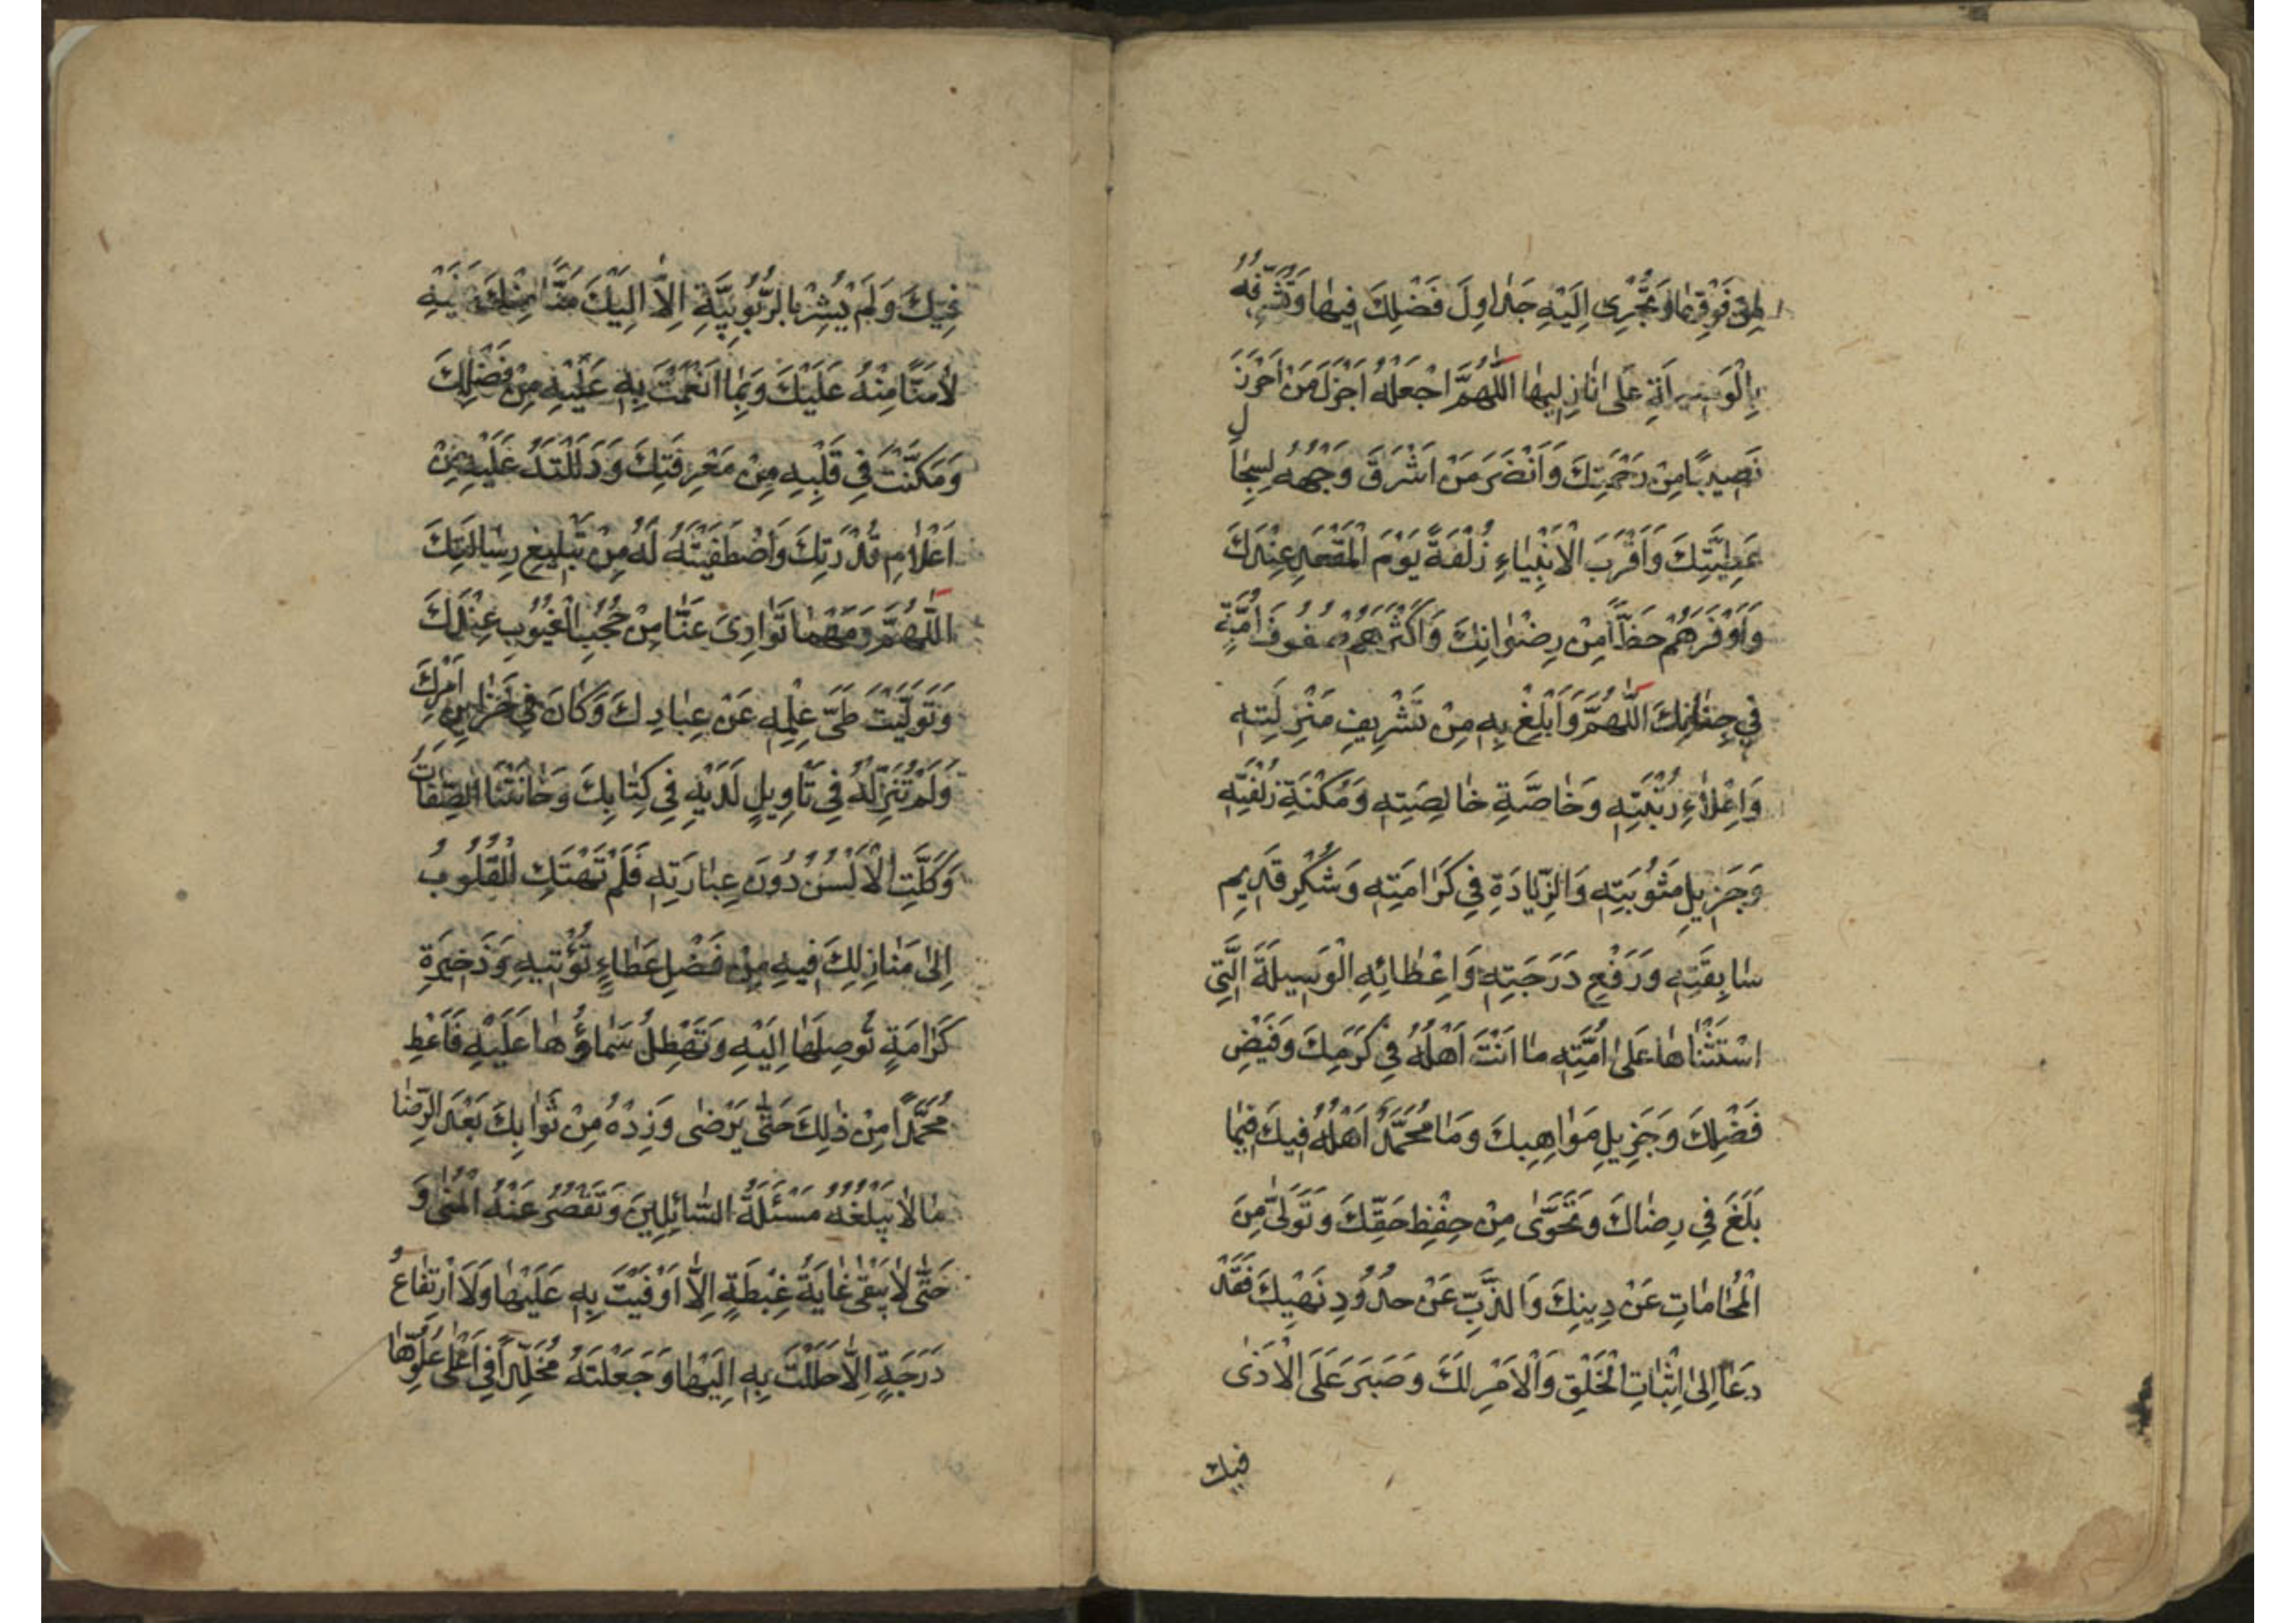 لِمَنْ فَوْقِهٰا وَتُجْرِي اِلَيْهِ جَدٰاوِلَ فَضْلِكَ فِيهٰا وَتُشَرِّفُهُ
بِالْوَسِيلَةِ عَلىٰ نٰازِلِيهٰا اَللّٰهُمَّ اجْعَلْهُ اَجْزَلَ مَنْ اَحْرَزَ
نَصِيبًا مِنْ رَحْمَتِكَ وَاَنْضَرَ مَنْ اَشْرَقَ وَجْهُهُ لِسِجٰالِ
عَطِيَّتِكَ وَاَقْرَبَ الْاَنْبِيٰاءِ زُلْفَةً يَوْمَ الْمَقْعَدِ عِنْدَكَ
وَاَوْفَرَهُمْ حَظًّا مِنْ رِضْوٰانِكَ وَاَكْثَرَهُمْ صُفُوفَ اُمَّةٍ
فِي جِنٰانِكَ اَللّٰهُمَّ وَاَبْلِغْ بِهِ مِنْ تَشْرِيفِ مَنْزِلَتِهِ
وَاِعْلٰاءِ رُتْبَتِهِ وَخٰاصَّةِ خٰالِصَتِهِ وَمُكْنَةِ زُلْفَتِهِ
وَجَزِيلِ مَثُوبَتِهِ وَالزِّيٰادَةِ فِي كَرٰامَتِهِ وَشُكْرِ قَدِيمِ
سٰابِقَتِهِ وَرَفْعِ دَرَجَتِهِ وَاِعْطٰائِهِ الْوَسِيلَةَ الَّتِي
اسْتَثْنٰاهٰا عَلىٰ اُمَّتِهِ مٰا اَنْتَ اَهْلُهُ فِي كَرَمِكَ وَفَيْضِ
فَضْلِكَ وَجَزِيلِ مَوٰاهِبِكَ وَمٰا مُحَمَّدٌ اَهْلُهُ فِيكَ فِيمٰا
بَلَغَ فِي رِضٰاكَ وَتَحَرّىٰ مِنْ حِفْظِ حَقِّكَ وَتَوَلّىٰ مِنَ
الْمُحٰامٰاتِ عَنْ دِينِكَ وَالذَّبِّ عَنْ حُدُودِ نَهْيِكَ فَقَدْ
دَعٰا اِلىٰ اِثْبٰاتِ الْخَلْقِ وَالْاَمْرِ لَكَ وَصَبَرَ عَلَى الْاَذىٰ
فيك
فِيكَ وَلَمْ يُشِرْ بِالرُّبُوبِيَّةِ اِلّٰا اِلَيْكَ مَنًّا مِنْكَ عَلَيْهِ
لٰا مَنًّا مِنْهُ عَلَيْكَ وَبِمٰا اَنْعَمْتَ بِهِ عَلَيْهِ مِنْ فَضْلِكَ
وَمَكَّنْتَ فِي قَلْبِهِ مِنْ مَعْرِفَتِكَ وَدَلَلْتَهُ عَلَيْهِ مِنْ
اَعْلٰامِ قُدْرَتِكَ وَاصْطَفَيْتَهُ لَهُ مِنْ تَبْلِيغِ رِسٰالَتِكَ
اَللّٰهُمَّ وَمَهْمٰا تَوٰارىٰ عَنّٰا مِنْ حُجُبِ الْغُيُوبِ عِنْدَكَ
وَتَوَلَّيْتَ طَيَّ عِلْمِهِ عَنْ عِبٰادِكَ وَكٰانَ فِي خَزٰائِنِ اَمْرِكَ
وَلَمْ تُنَزِّلْهُ فِي تَاْوِيلٍ لَدَيْهِ فِي كِتٰابِكَ وَخٰانَتْنَا الصِّفٰاتُ
وَكَلَّتِ الْاَلْسُنُ دُونَ عِبٰارَتِهِ فَلَمْ تَهْتَدِ الْقُلُوبُ
اِلىٰ مَنٰازِلِكَ فِيهِ مِنْ فَضْلِ عَطٰاءٍ تُؤْتِيهِ وَذَخِيرَةِ
كَرٰامَةٍ تُوصِلُهٰا اِلَيْهِ وَتَهْطِلُ سَمٰاؤُهٰا عَلَيْهِ فَاَعْطِ
مُحَمَّدًا مِنْ ذٰلِكَ حَتّىٰ يَرْضىٰ وَزِدْهُ مِنْ ثَوٰابِكَ بَعْدَ الرِّضٰا
مٰا لٰا يَبْلُغُهُ مَسْئَلَةُ السّٰائِلِينَ وَتَقْصُرُ عَنْهُ الْمُنىٰ وَ
حَتّىٰ لٰا يَبْقىٰ غٰايَةُ غِبْطَةٍ اِلّٰا اَوْفَيْتَ بِهِ عَلَيْهٰا وَلَا ارْتِفٰاعُ
دَرَجَةٍ اِلّٰا حَلَلْتَ بِهِ اِلَيْهٰا وَجَعَلْتَهُ مُخَلَّدًا فِي اَعْلىٰ عُلُوِّهٰا